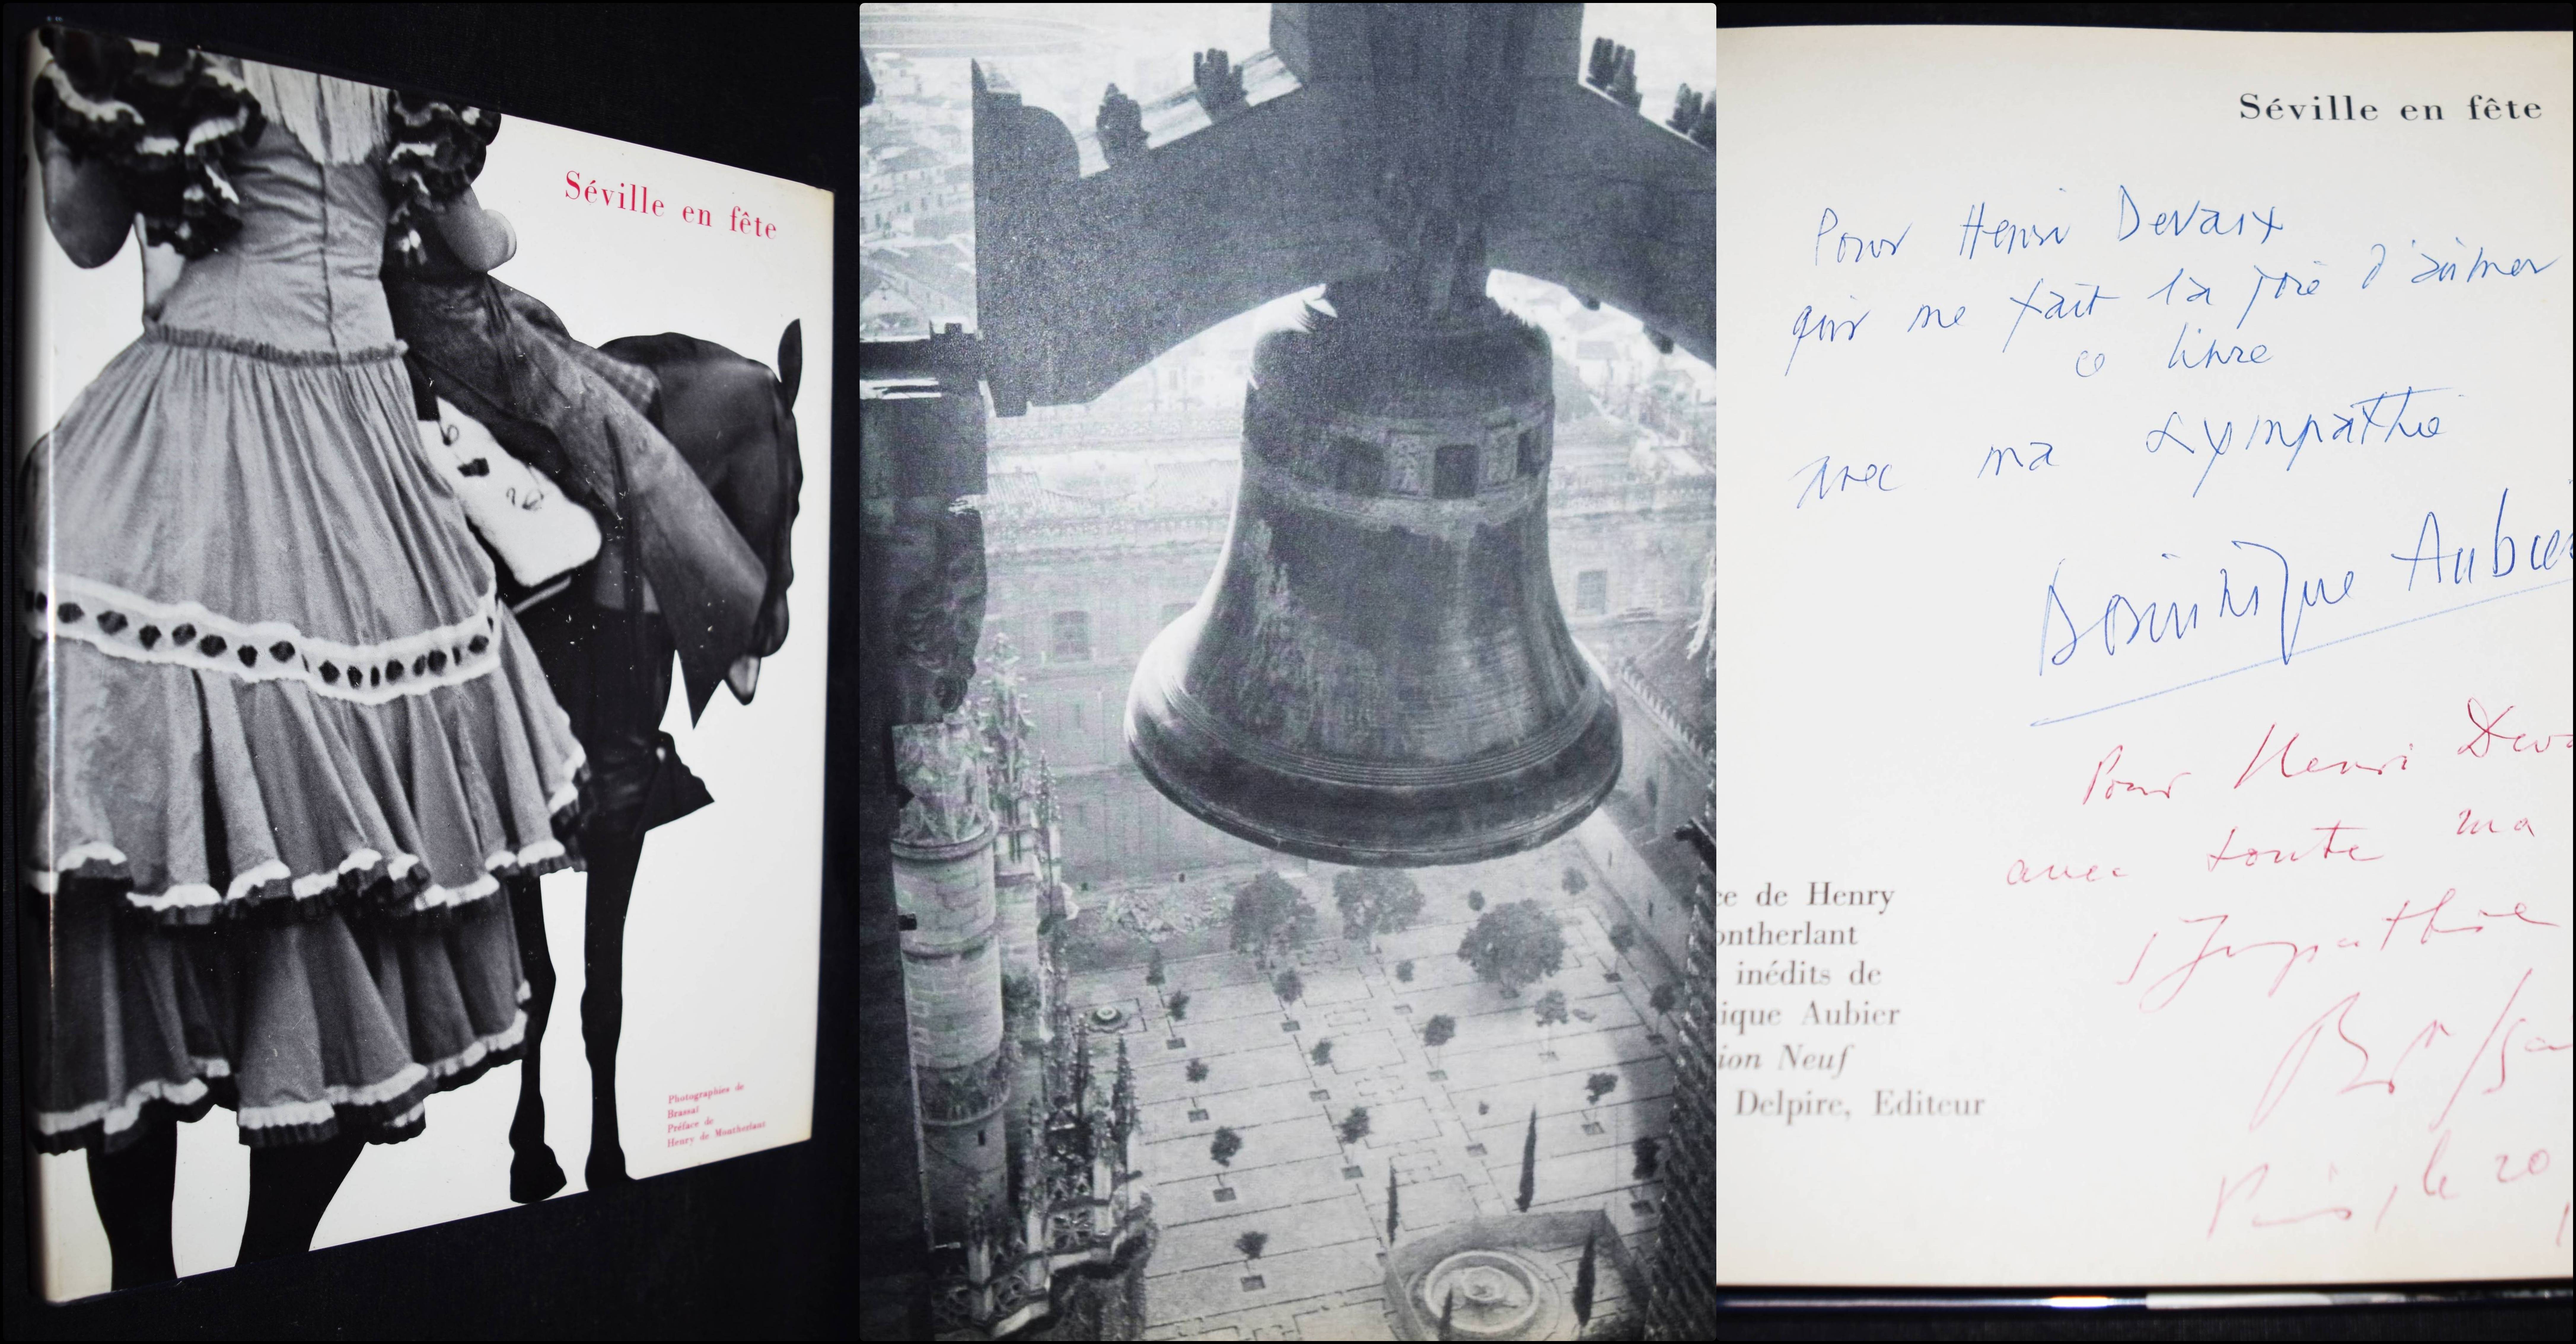 Séville en fête
Photographies de
Brassaï
Préface de
Henry de Montherlant
Séville en fête
Pour Henri Devaux
qui me fait la joie d'aimer
ce livre
avec ma sympathie
Dominique Aubier
Pour Henri
avec toute ma
sympathie
Paris, le 20
ce de Henry
ontherlant
inédits de
ique Aubier
ion Neuf
Delpire, Editeur